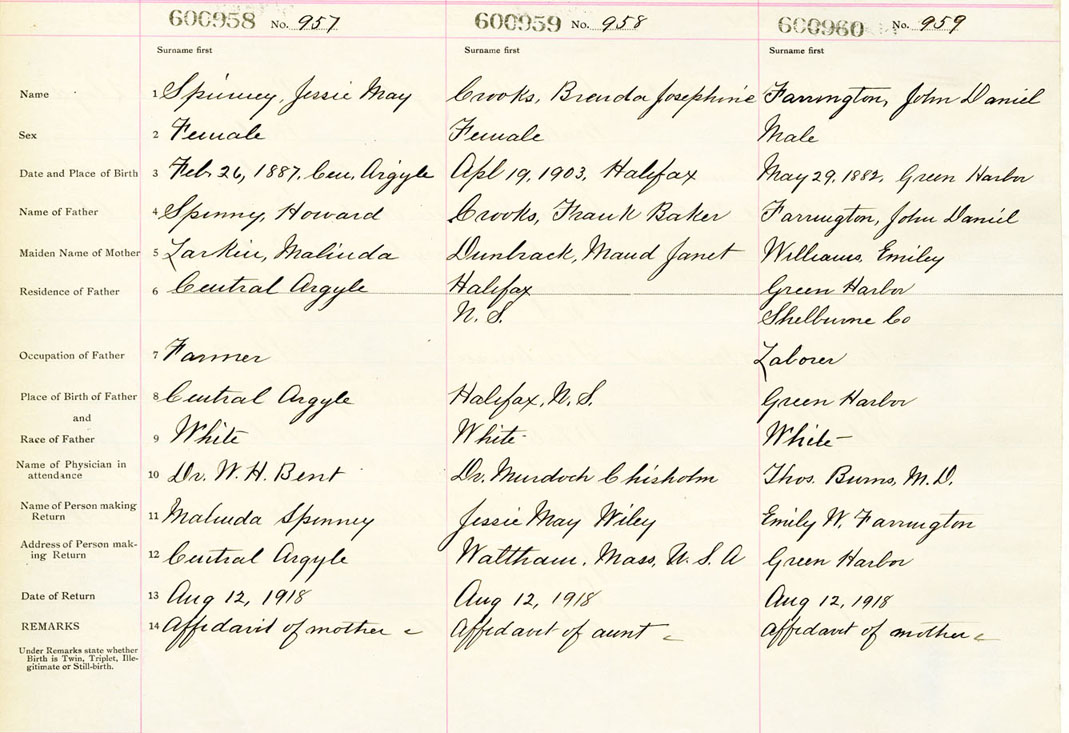 600958 No. 957 600959 No. 958 600960 No. 959
Surname first Surname first Surname first
Name 1 Spinney, Jessie May Crooks, Brenda Josephine Farrington, John Daniel
Sex 2 Female Female Male
Date and Place of Birth 3 Feb 26, 1887, Cen. Argyle Apl 19, 1903, Halifax May 29, 1882, Green Harbor
Name of Father 4 Spinny, Howard Crooks, Frank Baker Farrington, John Daniel
Maiden Name of Mother 5 Larkin, Malinda Dunbrack, Maud Janet Williams, Emiley
Residence of Father 6 Central Argyle Halifax Green Harbor
N. S. Shelburne Co
Occupation of Father 7 Farmer Laborer
Place of Birth of Father 8 Central Argyle Halifax, N. S. Green Harbor
and
Race of Father 9 White White White
Name of Physician in
attendance 10 Dr. W. H. Bent Dr. Murdoch Chisholm Thos. Burns, M. D.
Name of Person making
Return 11 Malinda Spinney Jessie May Wiley Emily W. Farrington
Address of Person mak-
ing Return 12 Central Argyle Waltham, Mass, U. S. A Green Harbor
Date of Return 13 Aug 12, 1918 Aug 12, 1918 Aug 12, 1918
REMARKS 14 Affidavit of mother Affidavit of aunt Affidavit of mother
Under Remarks state whether
Birth is Twin, Triplet, Ille-
gitimate or Still-birth.